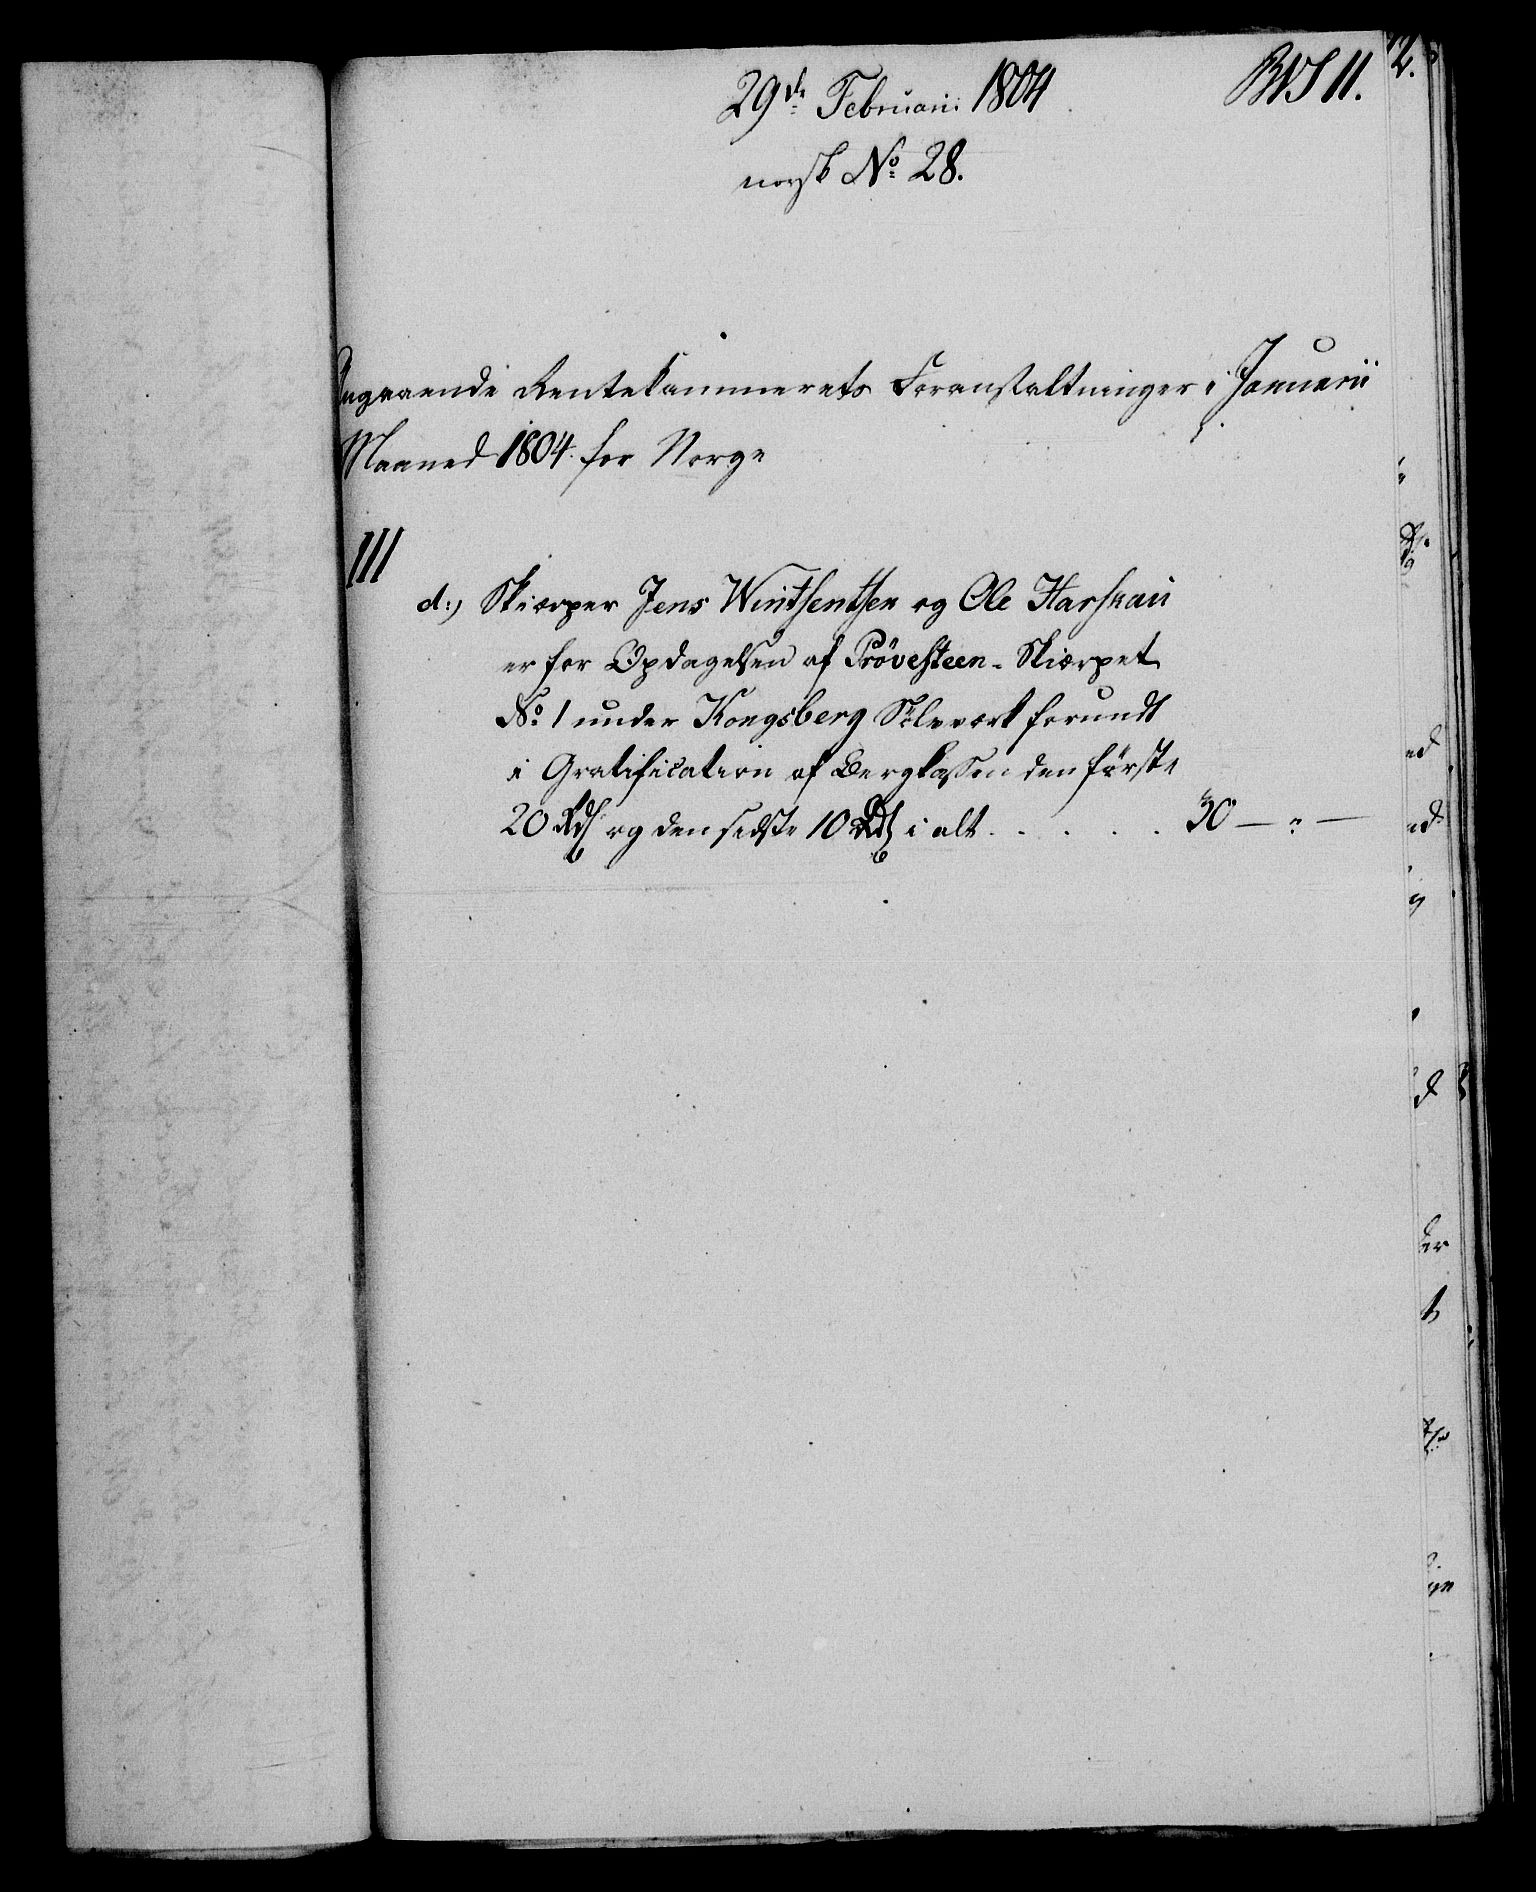 29de Februarii 1804
norsk No 28.
Angaaende Rentekammerets Foranstaltninger i Januarii
Maaned 1804 for Norge
III
d:) Skiærper Jens Wintsentsen og Ole
er for Opdagelsen af Prøvesteen-Skiærpet
No 1 under Kongsberg Sölvværk forundt
i Gratification af Bergkassen den förste
20 Rd og den sidste 10 Rd i alt . . . . . 30 — " —